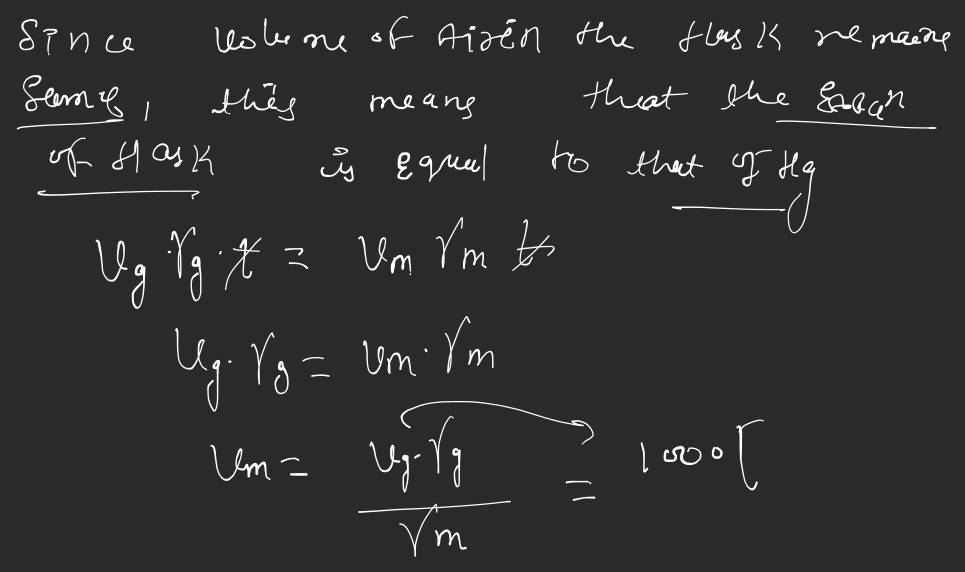 Since volume of Air in the flask remains
Same, this means that the Expan
of flask is Equal to that of Hg
Vg · γg · t = Vm γm t
Vg · γg = Vm · γm
Vm = Vg · γg / γm = 1000 [